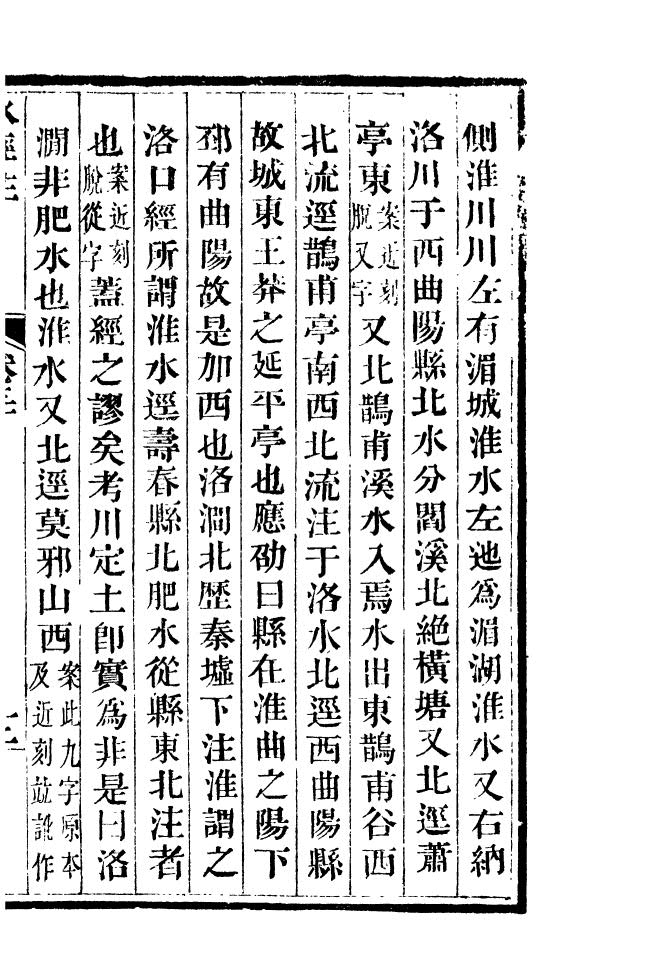 側淮川川左有湄城淮水左迆爲湄湖淮水又右納
洛川于西曲陽縣北水分閻溪北絶橫塘又北逕蕭
亭東案近刻脫又字又北鵲甫溪水入焉水出東鵲甫谷西
北流逕鵲甫亭南西北流注于洛水北逕西曲陽縣
故城東王莽之延平亭也應劭曰縣在淮曲之陽下
邳有曲陽故是加西也洛澗北歷秦墟下注淮謂之
洛口經所謂淮水逕壽春縣北肥水從縣東北注者
也案近刻脫從字蓋經之謬矣考川定土卽實爲非是曰洛
澗非肥水也淮水又北逕莫邪山西案此九字原本及近刻竝訛作
水經注